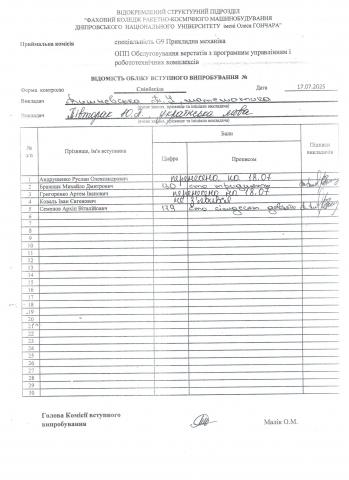 ВІДОКРЕМЛЕНИЙ СТРУКТУРНИЙ ПІДРОЗДІЛ
"ФАХОВИЙ КОЛЕДЖ РАКЕТНО-КОСМІЧНОГО МАШИНОБУДУВАННЯ
ДНІПРОВСЬКОГО НАЦІОНАЛЬНОГО УНІВЕРСИТЕТУ імені Олеся ГОНЧАРА"
Приймальна комісія
спеціальність G9 Прикладна механіка
ОПП Обслуговування верстатів з програмним управлінням і
робототехнічних комплексів
ВІДОМІСТЬ ОБЛІКУ ВСТУПНОГО ВИПРОБУВАННЯ №
Форма контролю Співбесіда Дата 17.07.2025
Викладач математика
(вчене звання, прізвище та ініціали викладача)
Викладач Півторак Ю.А. українська мова
(вчене звання, прізвище та ініціали викладача)
№ з/п Прізвище, ім'я вступника Бали Підписи викладачів
Цифра Прописом
1 Андрущенко Руслан Олександрович перенесено на 18.07
2 Бражник Михайло Дмитрович 130 сто тридцять
3 Григоренко Артем Іванович перенесено на 18.07
4 Коваль Іван Євгенович не з'явився
5 Семенко Архіп Віталійович 179 сто сімдесят дев'ять
6
7
8
9
10
11
12
13
14
15
16
17
18
19
20
21
22
23
24
25
26
27
28
29
30
Голова Комісії вступного
випробування Малік О.М.